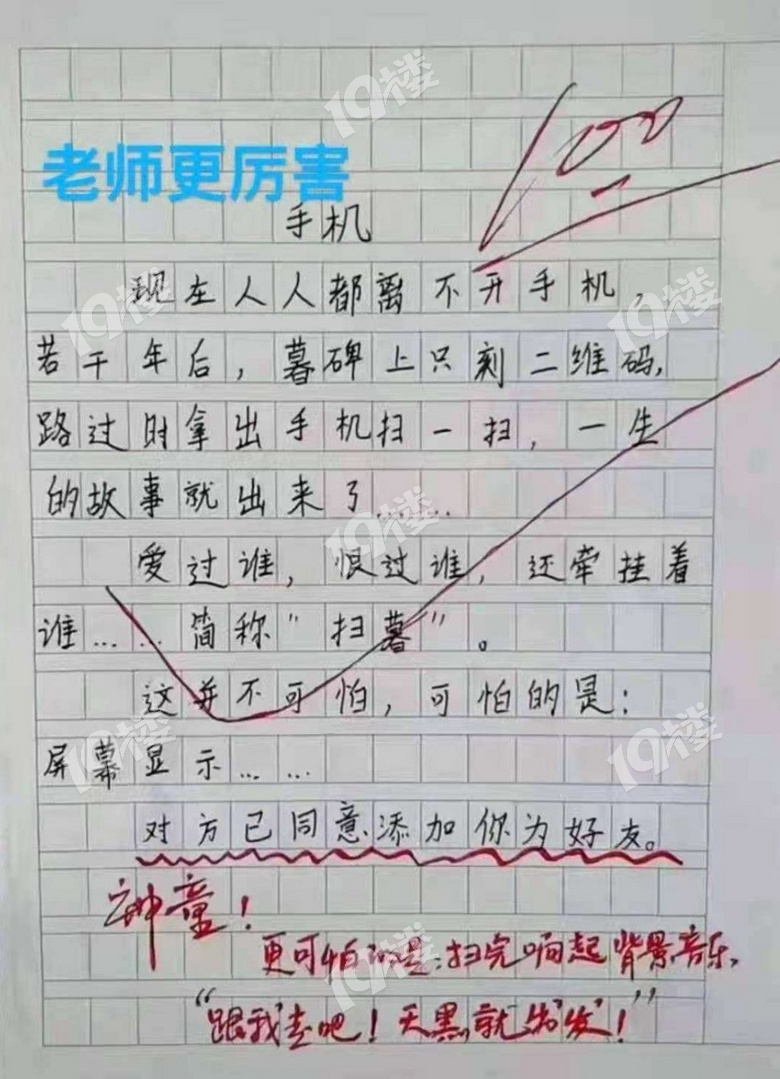 19楼
100
老师更厉害
手机
现在人人都离不开手机，
若干年后，暮碑上只刻二维码，
路过时拿出手机扫一扫，一生
的故事就出来了……
爱过谁，恨过谁，还牵挂着
谁……简称"扫暮"。
这并不可怕，可怕的是：
屏幕显示……
对方已同意添加你为好友。
神童！
更可怕的是：扫完响起背景音乐，
"跟我去吧！天黑就出发！"